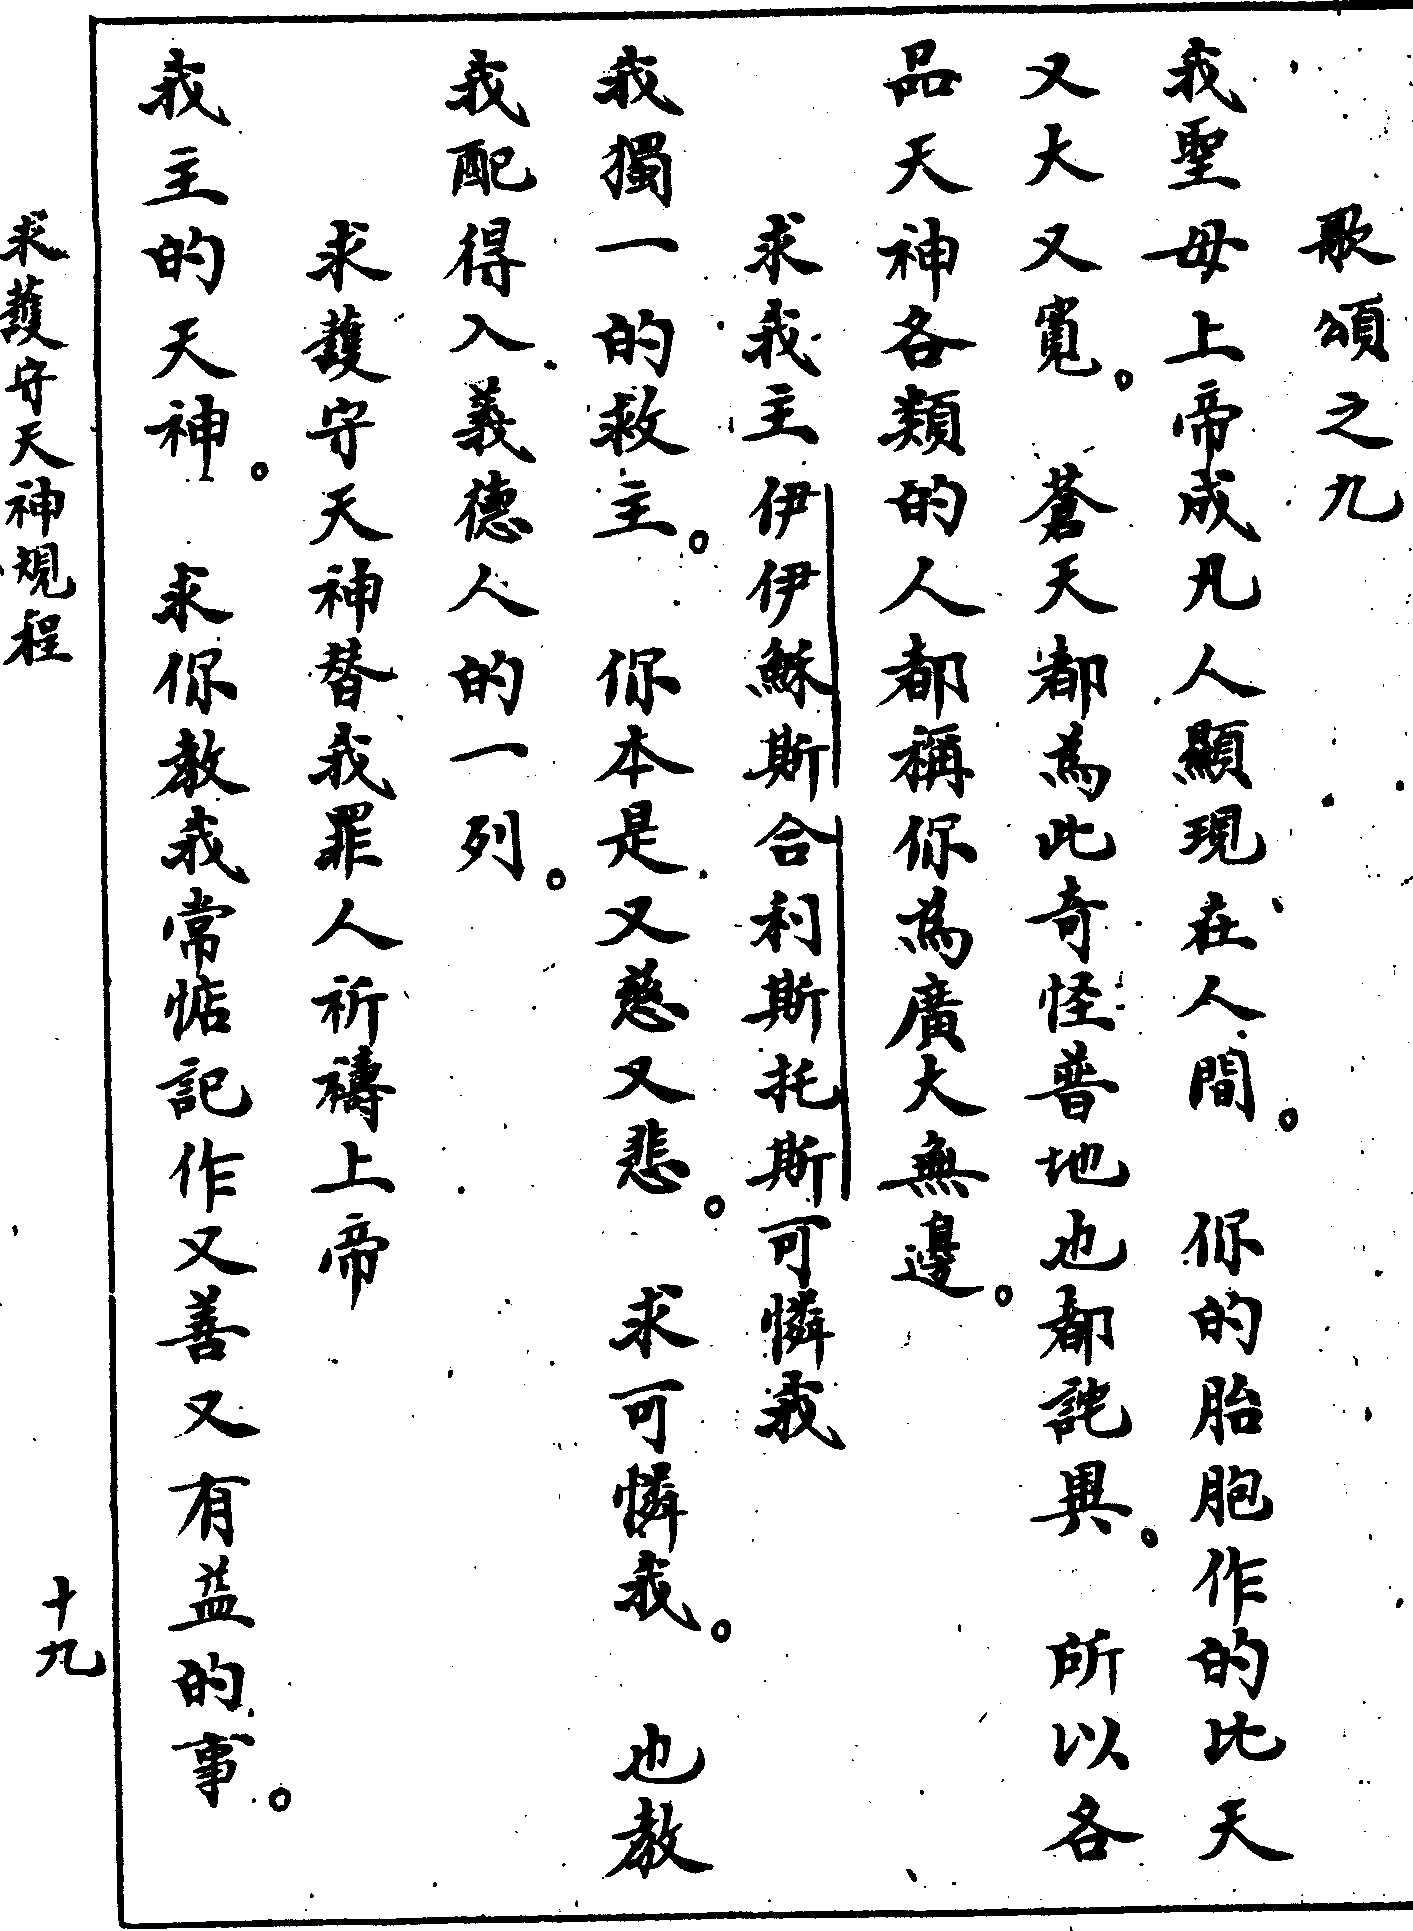 歌頌之九
我聖母上帝成凡人顯現在人間。你的胎胞作的比天
又大又寬。蒼天都為此奇怪普地也都詫異。所以各
品天神各類的人都稱你為廣大無邊。
求我主伊伊穌斯合利斯托斯可憐我
我獨一的救主。你本是又慈又悲。求可憐我。也教
我配得入義德人的一列。
求護守天神替我罪人祈禱上帝
我主的天神。求你教我常惦記作又善又有益的事。
求護守天神規程
十九